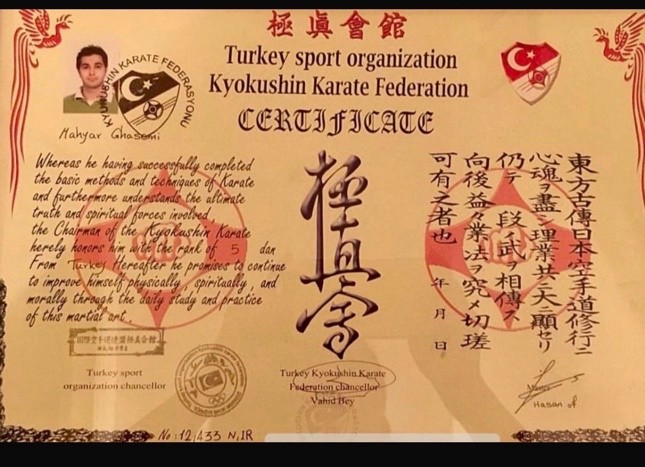 極眞會館
Turkey sport organization
Kyokushin Karate Federation
CERTIFICATE
KYOKUSHIN KARATE FEDERASYONU
Mahyar Ghasemi
Whereas he having successfully completed
the basic methods and techniques of Karate
and furthermore understands the ultimate
truth and spiritual forces involved.
the Chairman of the Kyokushin Karate
hereby honors him with the rank of 5 dan
From Turkey Hereafter he promises to continue
to improve himself physically, spiritually, and
morally through the daily study and practice
of this martial art.
極真會
東方古傳日本空手道修行ニ
心魂ヲ盡シ理業共ニ大ニ顯セリ
仍テ 段ノ武ヲ相傳ス
向後益々業法ヲ究メ切瑳
可有之者也 年 月 日
国際空手道連盟極真会館
Turkey sport
organization chancellor
Turkey Kyokushin Karate
Federation chancellor
Vahid Bey
Hasan
No:12,433 N,IR